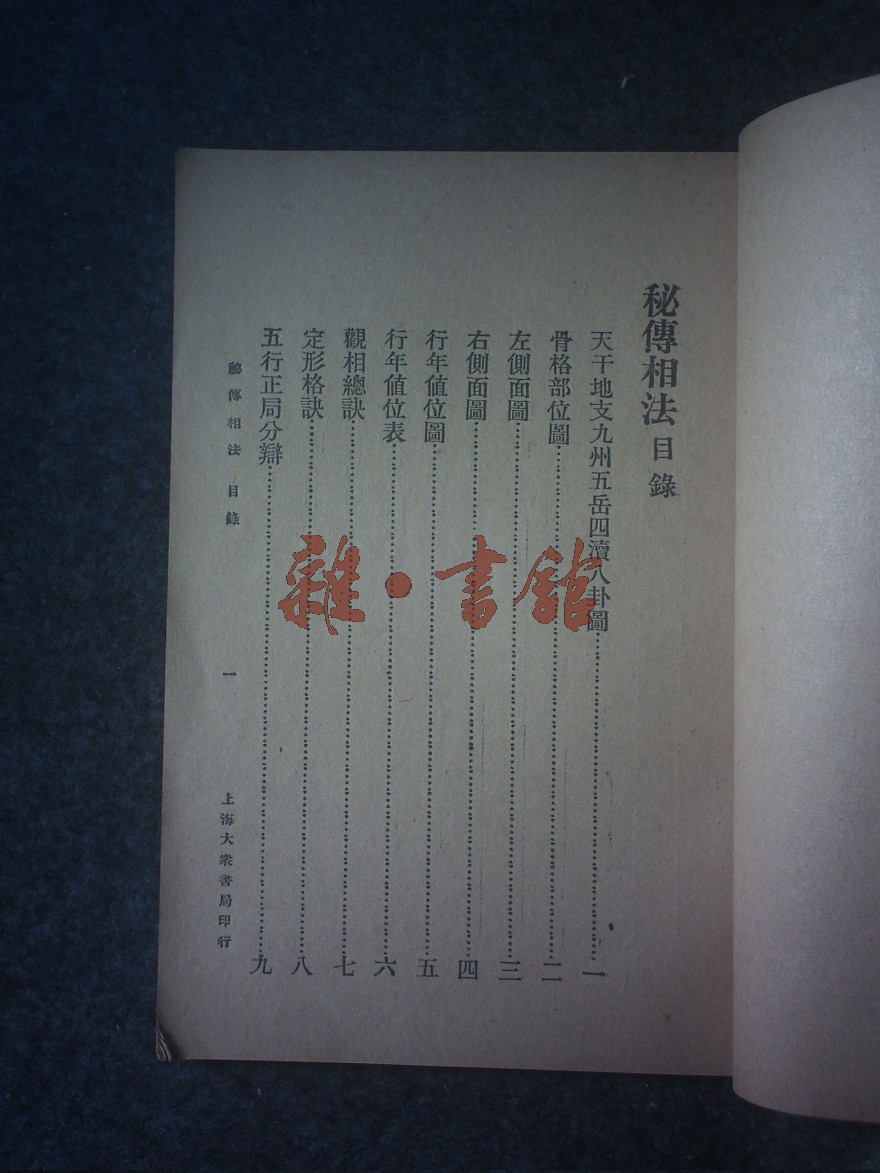 秘傳相法 目錄
天干地支九州五岳四瀆八卦圖……一
骨格部位圖……二
左側面圖……三
右側面圖……四
行年值位圖……五
行年值位表……六
觀相總訣……七
定形格訣……八
五行正局分辯……九
秘傳相法 目錄 一 上海大衆書局印行
雜·書館